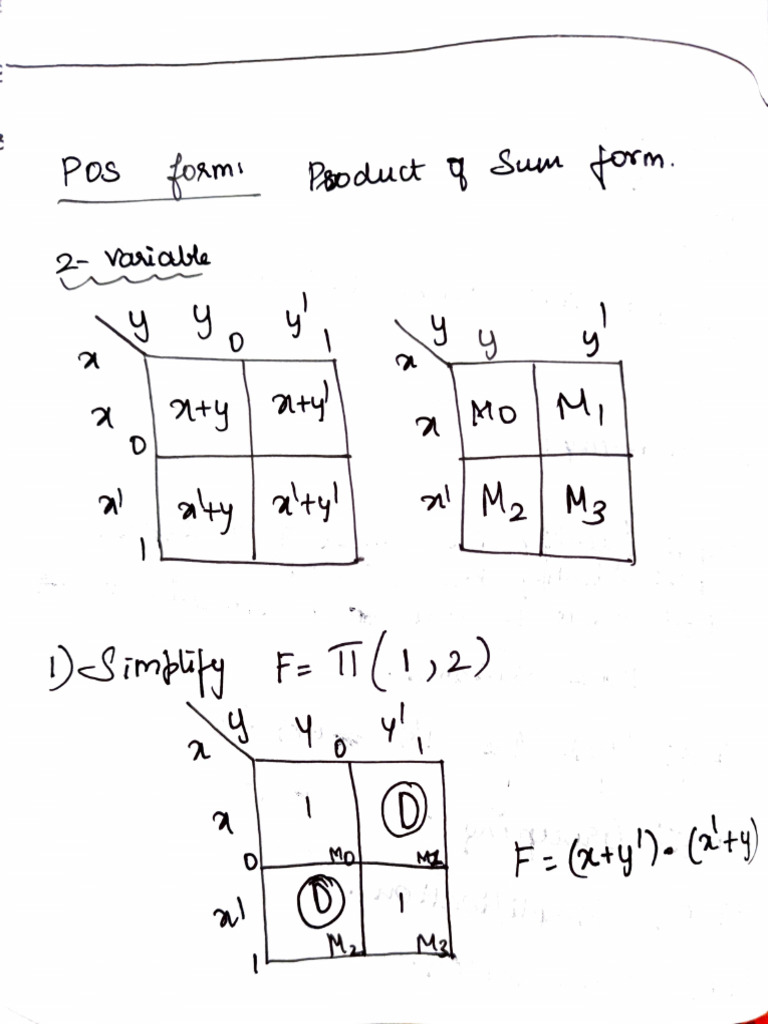 POS form: Product of Sum form.
2- variable
y y 0 y' 1
x
x 0 x+y x+y'
x' 1 x'+y x'+y'
y y y'
x
x M0 M1
x' M2 M3
1) Simplify F = π(1,2)
y y 0 y' 1
x
x 0 1 M0 0 M1
x' 1 0 M2 1 M3
F = (x+y')·(x'+y)